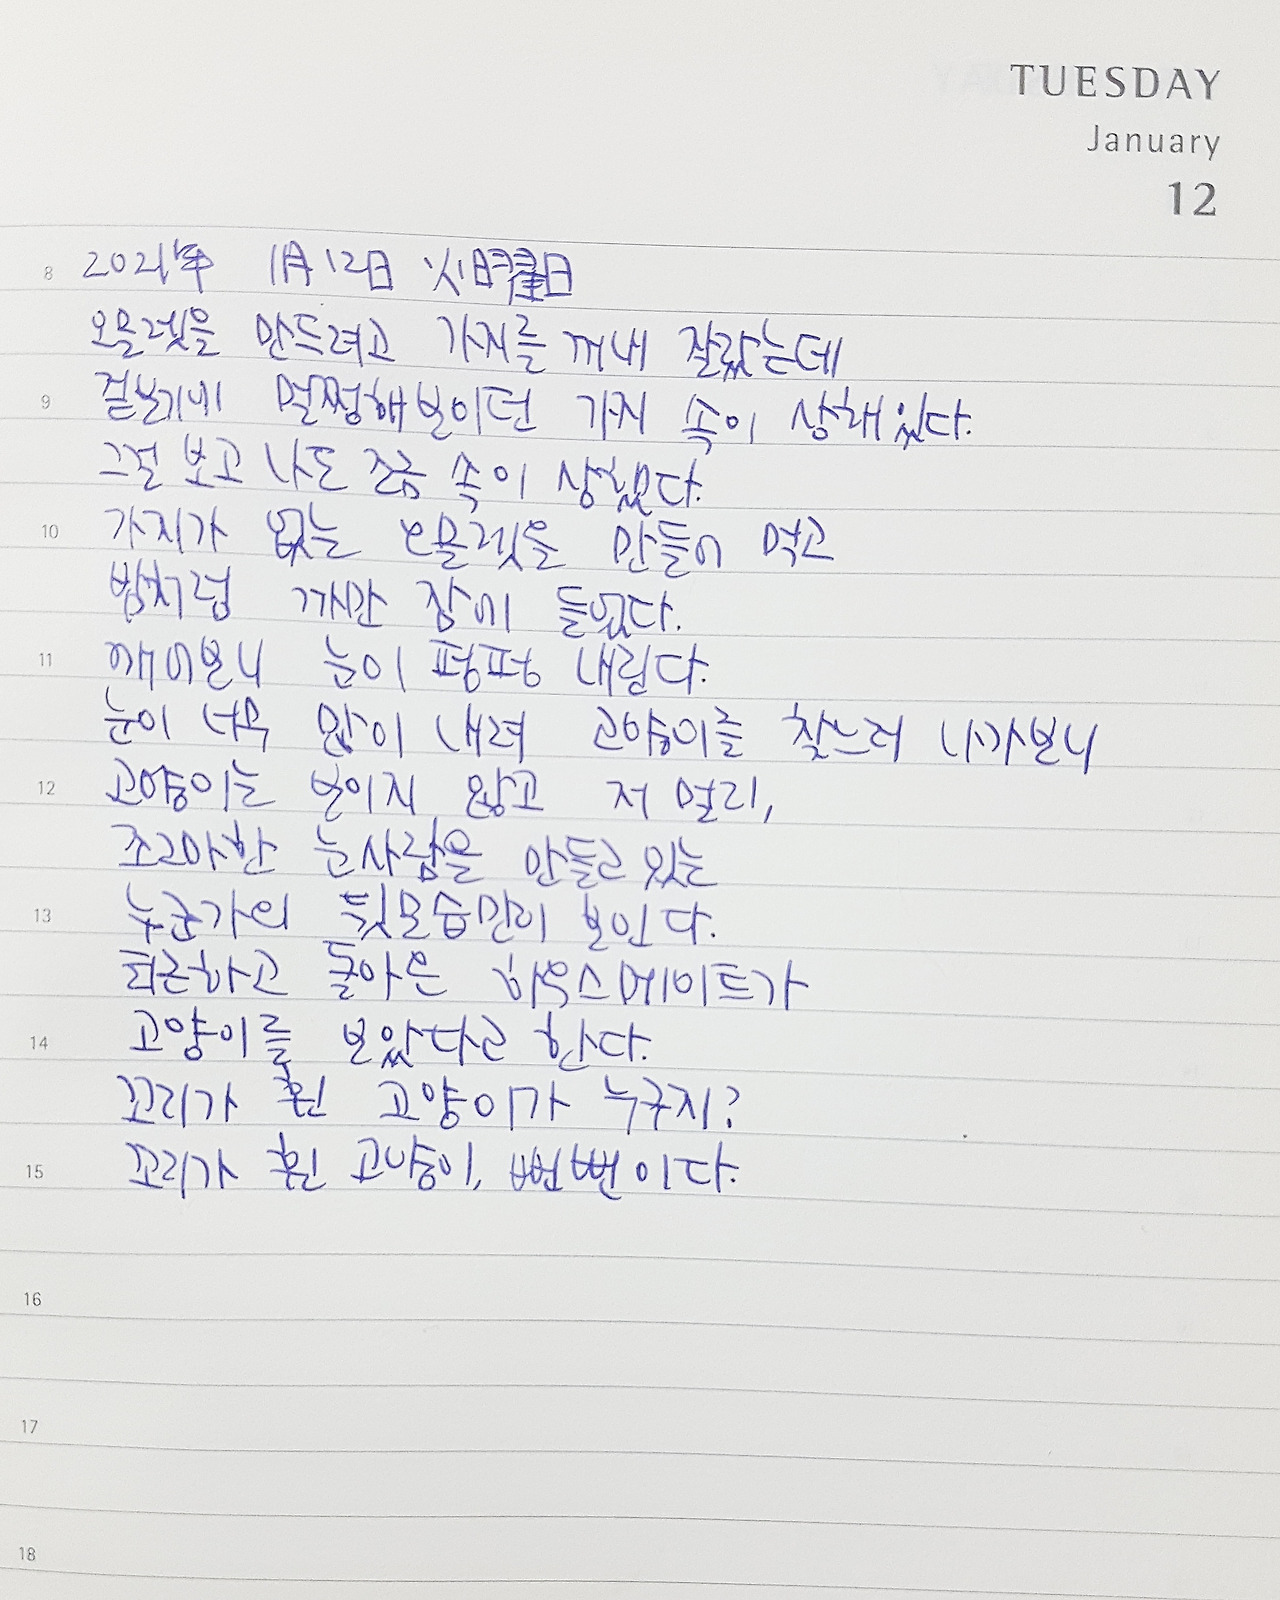 TUESDAY
January
12
8 2021年 1月 12日 火曜日
오믈렛을 만드려고 가지를 꺼내 잘랐는데
9 겉보기에 멀쩡해보이던 가지 속이 상해있다.
그걸 보고 나도 조금 속이 상했다.
10 가지가 없는 오믈렛을 만들어 먹고
밤처럼 까만 잠에 들었다.
11 깨어보니 눈이 펑펑 내린다.
눈이 너무 많이 내려 고양이를 찾느러 나가보니
12 고양이는 보이지 않고 저 멀리,
조그마한 눈사람을 만들고 있는
13 누군가의 뒷모습만이 보인다.
퇴근하고 돌아온 하우스메이트가
14 고양이를 보았다고 한다.
꼬리가 휜 고양이가 누구지?
15 꼬리가 휜 고양이, 뻔뻔이다.
16
17
18